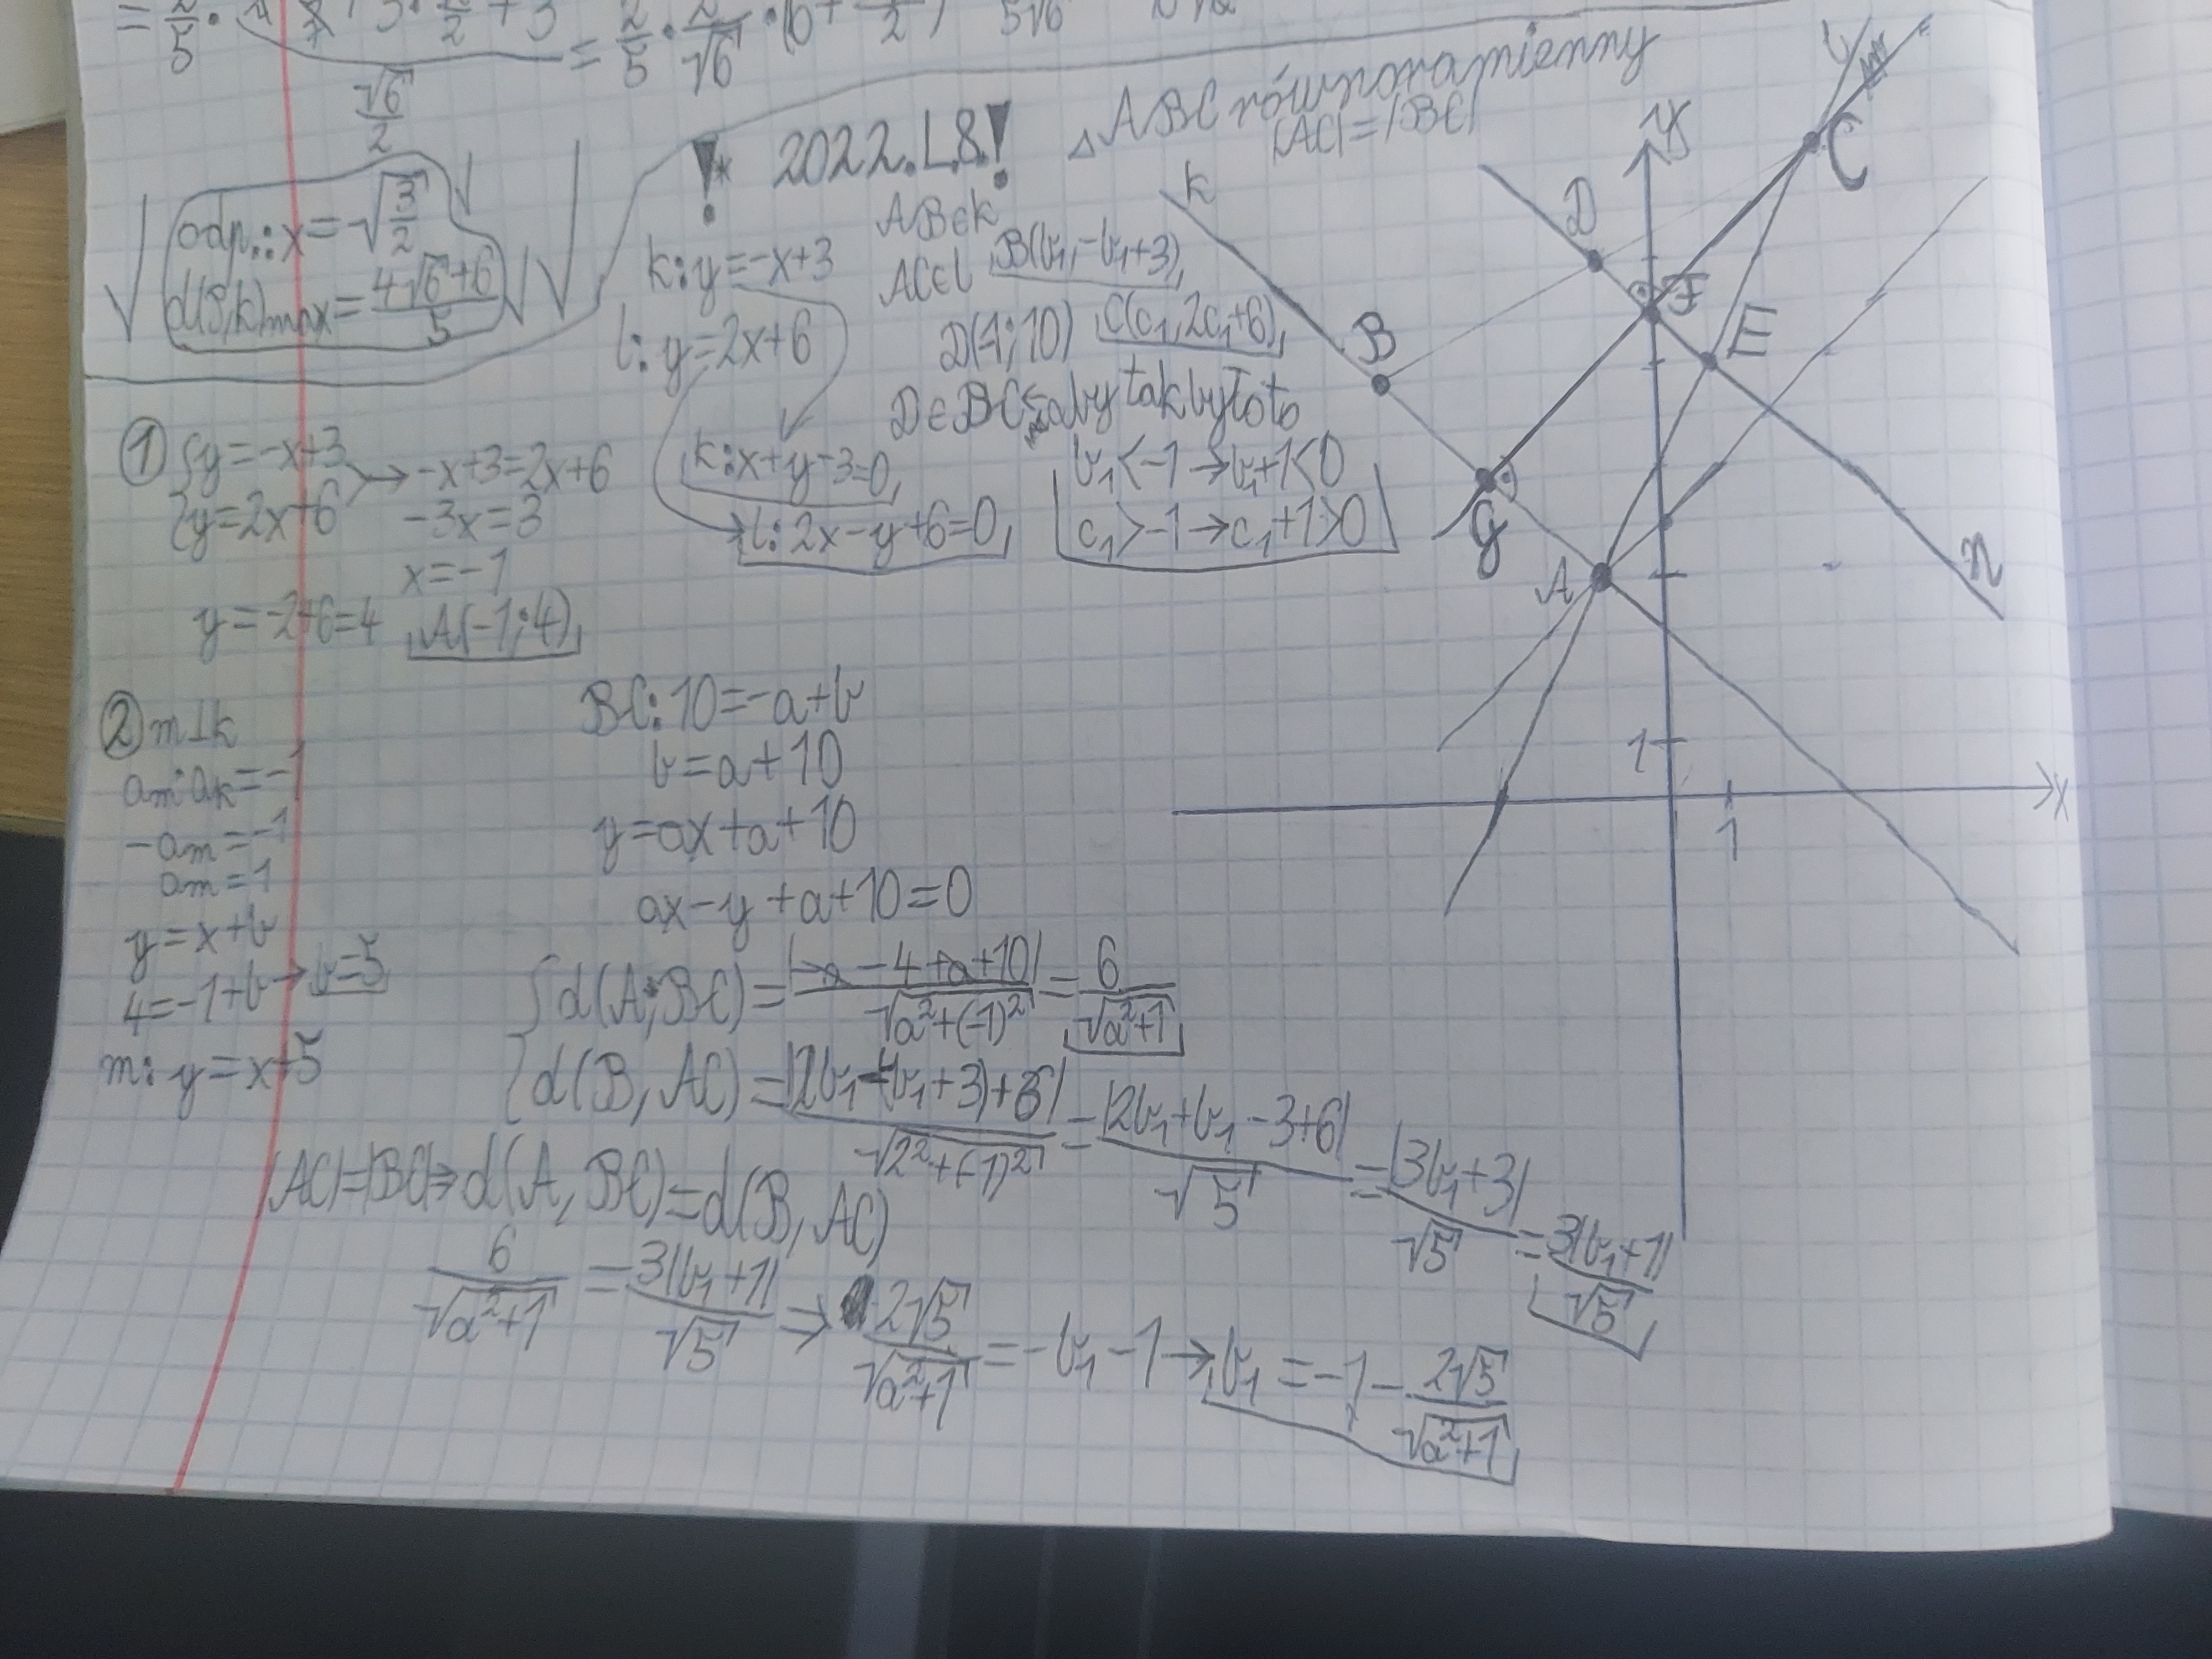 = 2/5 · = 2/5 · 2/√6 · (6+
√6/2
odp.: x = √(3/2)
d(P,k)max = (4√6+6)/5
!* 2022.L.8.!
△ABC równoramienny
|AC|=|BC|
k: y=-x+3
l: y=2x+6
AB∈k
AC∈l B(b₁,-b₁+3)
D(-1;10) C(c₁,2c₁+6)
D∈BC aby tak było to
k: x+y-3=0
l: 2x-y+6=0
b₁<-1→b₁+1<0
c₁>-1→c₁+1>0
① {y=-x+3 → -x+3=2x+6
{y=2x+6 -3x=3
x=-1
y=-2+6=4 A(-1;4)
② m⊥k
am·ak=-1
-am=-1
am=1
y=x+b
4=-1+b→b=5
m: y=x+5
BC: 10=-a+b
b=a+10
y=ax+a+10
ax-y+a+10=0
{d(A;BC)=|-a-4+a+10|/√(a²+(-1)²)=6/√(a²+1)
{d(B,AC)=|2b₁-(-b₁+3)+6|/√(2²+(-1)²)=|2b₁+b₁-3+6|/√5=|3b₁+3|/√5=3|b₁+1|/√5
|AC|=|BC|⇒d(A,BC)=d(B,AC)
6/√(a²+1)=3|b₁+1|/√5→2√5/√(a²+1)=-b₁-1→b₁=-1-2√5/√(a²+1)
k
D
B
F
E
C
G
A
n
y
x
1
1